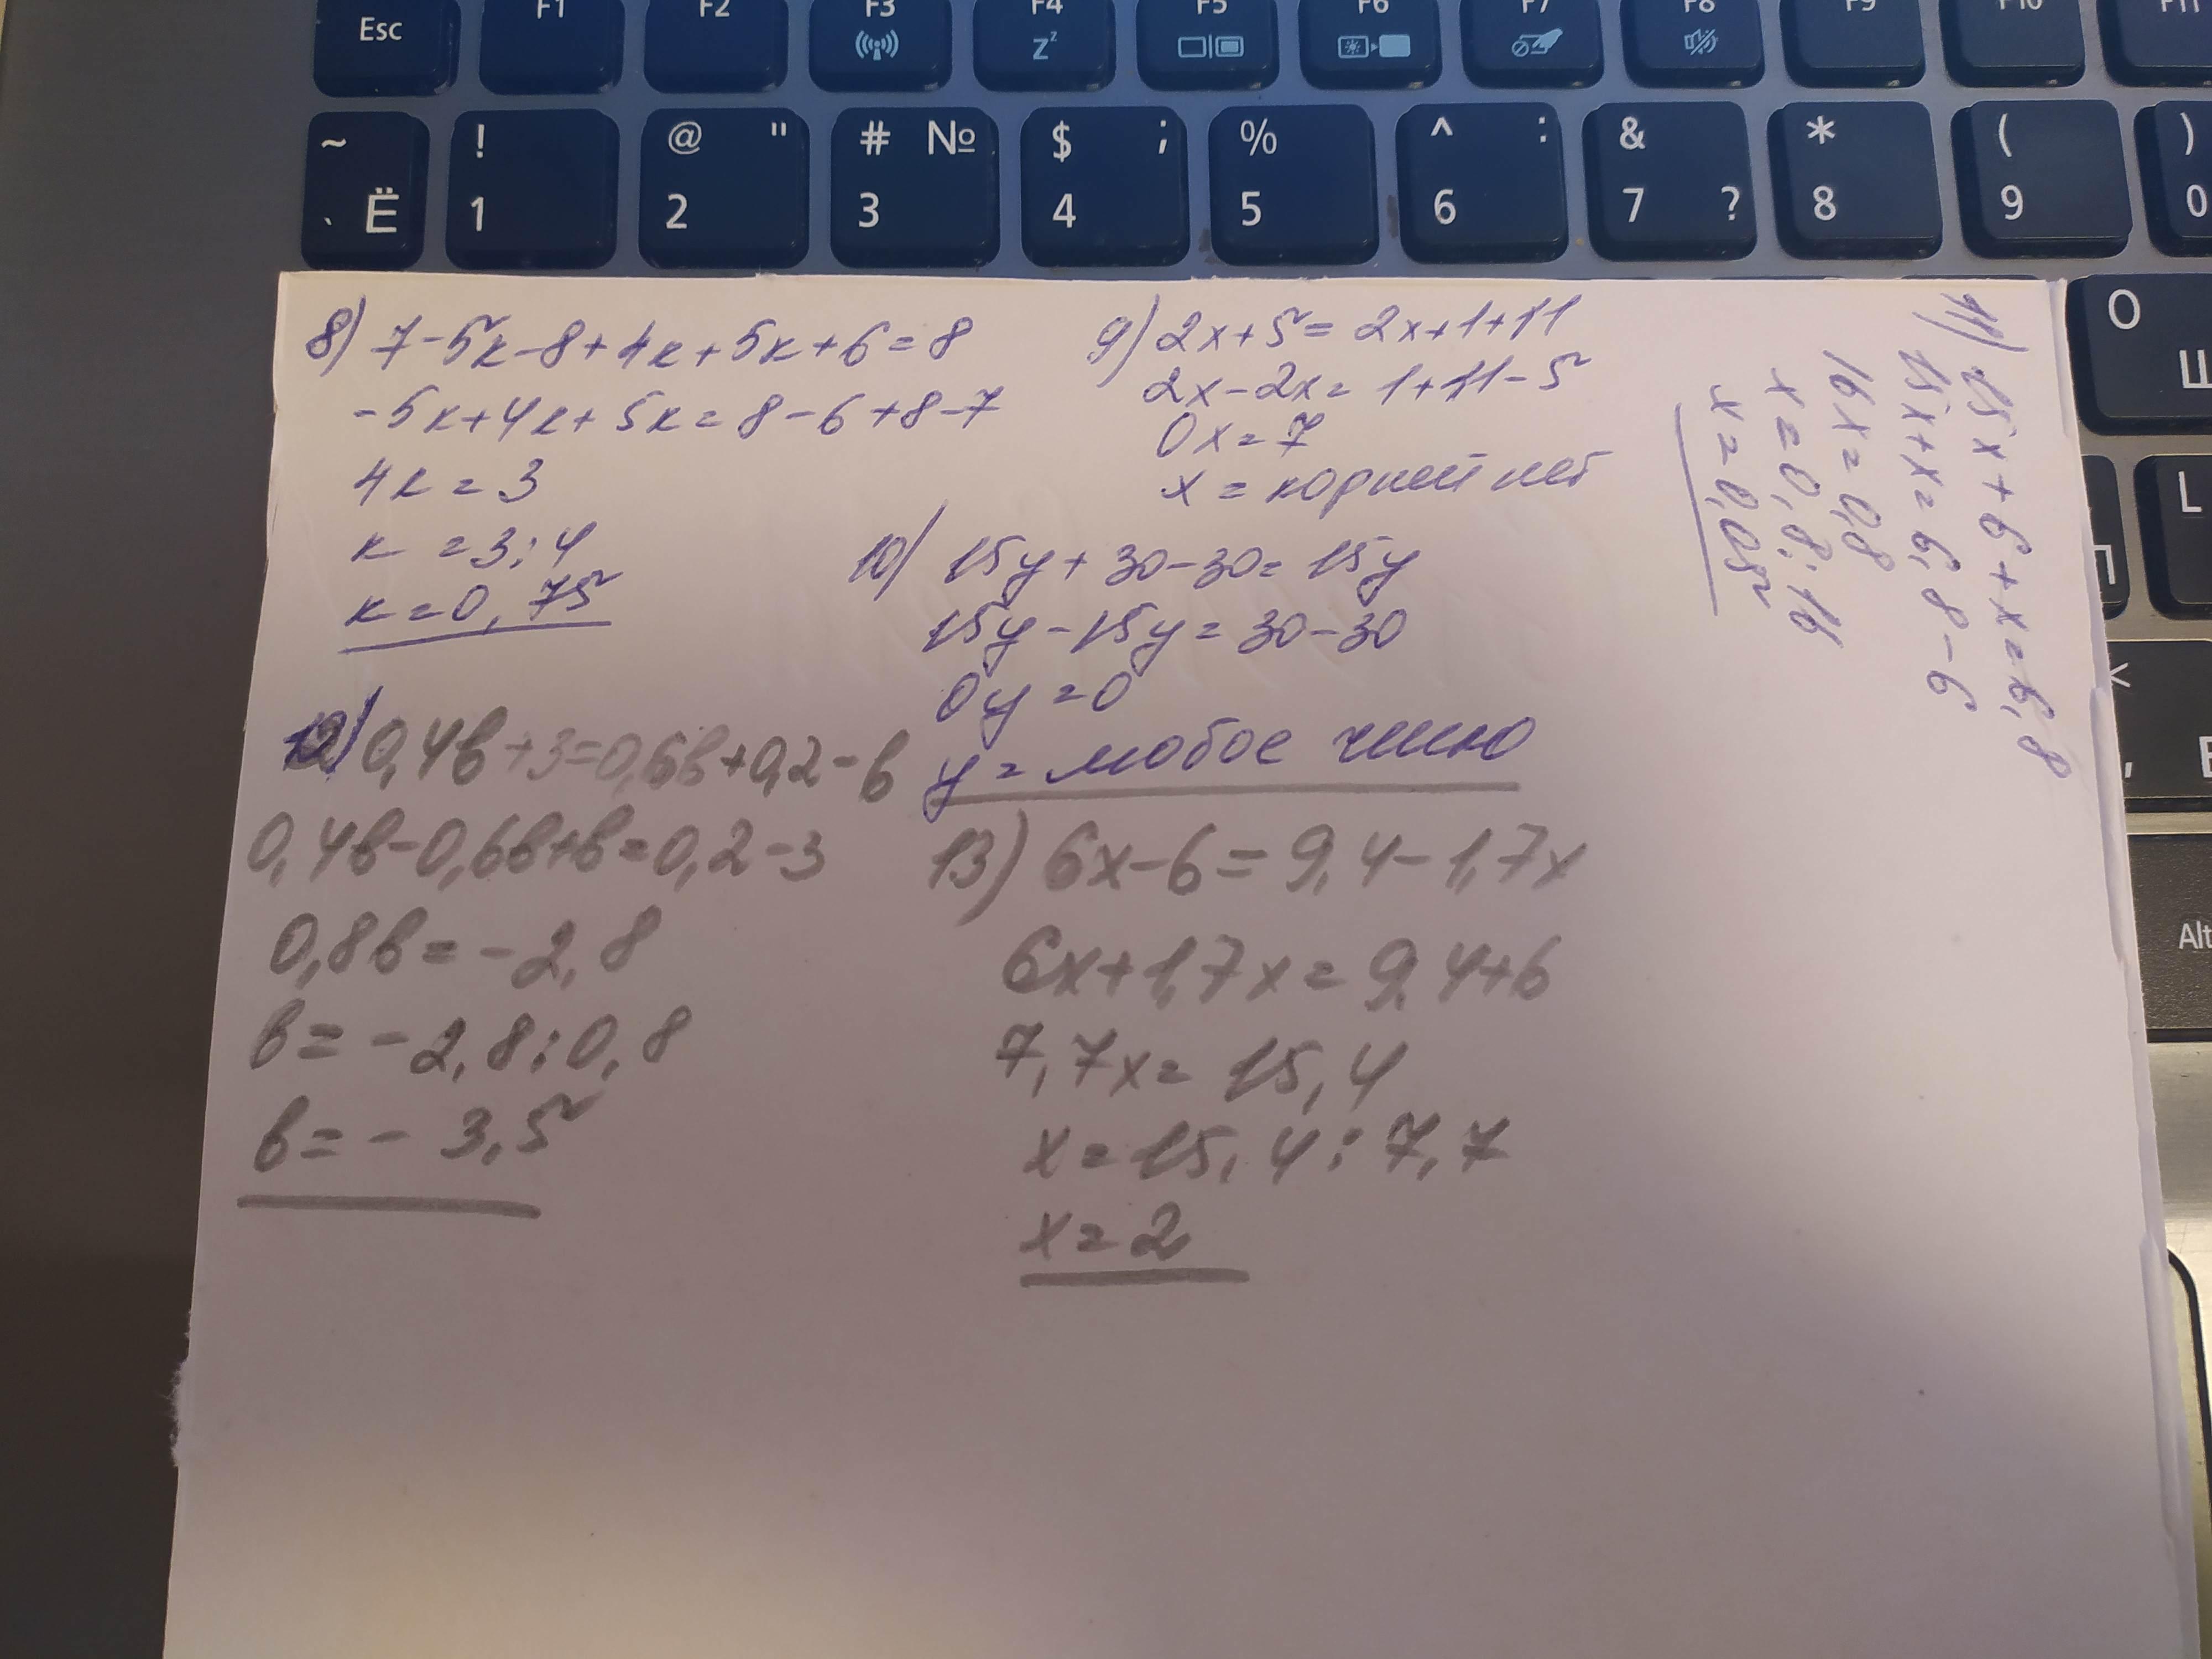 Esc F1 F2 F3 F4 F5 F6 F7 F8 F9 F10 F11
Zz
~ ` Ё ! 1 @ " 2 # № 3 $ ; 4 % 5 ^ : 6 & 7 ? * 8 ( 9 ) 0
О Щ
L
Alt
8) 7-5к-8+4к+5к+6=8
-5к+4к+5к=8-6+8-7
4к=3
к=3:4
к=0,75
9) 2x+5=2x+1+11
2x-2x=1+11-5
0x=7
x=корней нет
10) 15y+30-30=15y
15y-15y=30-30
0y=0
y=любое число
11) 15x+6+x=6,8
15x+x=6,8-6
16x=0,8
x=0,8:16
x=0,05
12) 0,4в+3=0,6в+0,2-в
0,4в-0,6в+в=0,2-3
0,8в=-2,8
в=-2,8:0,8
в=-3,5
13) 6x-6=9,4-1,7x
6x+1,7x=9,4+6
7,7x=15,4
x=15,4:7,7
x=2